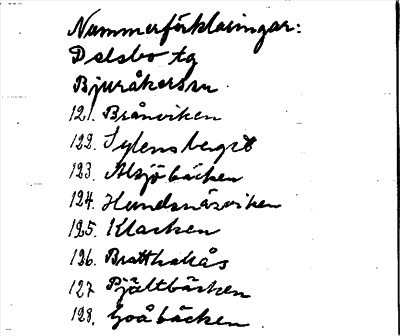 Nummerförklaringar:
Delsbo tg
Bjuråkerssn
121. Brånviken
122. Sylensberget
123. Alsjöbäcken
124. Hundsnäsviken
125. Klacken
126. Bratthakås
127 Pjältbäcken
128. Goåbäcken